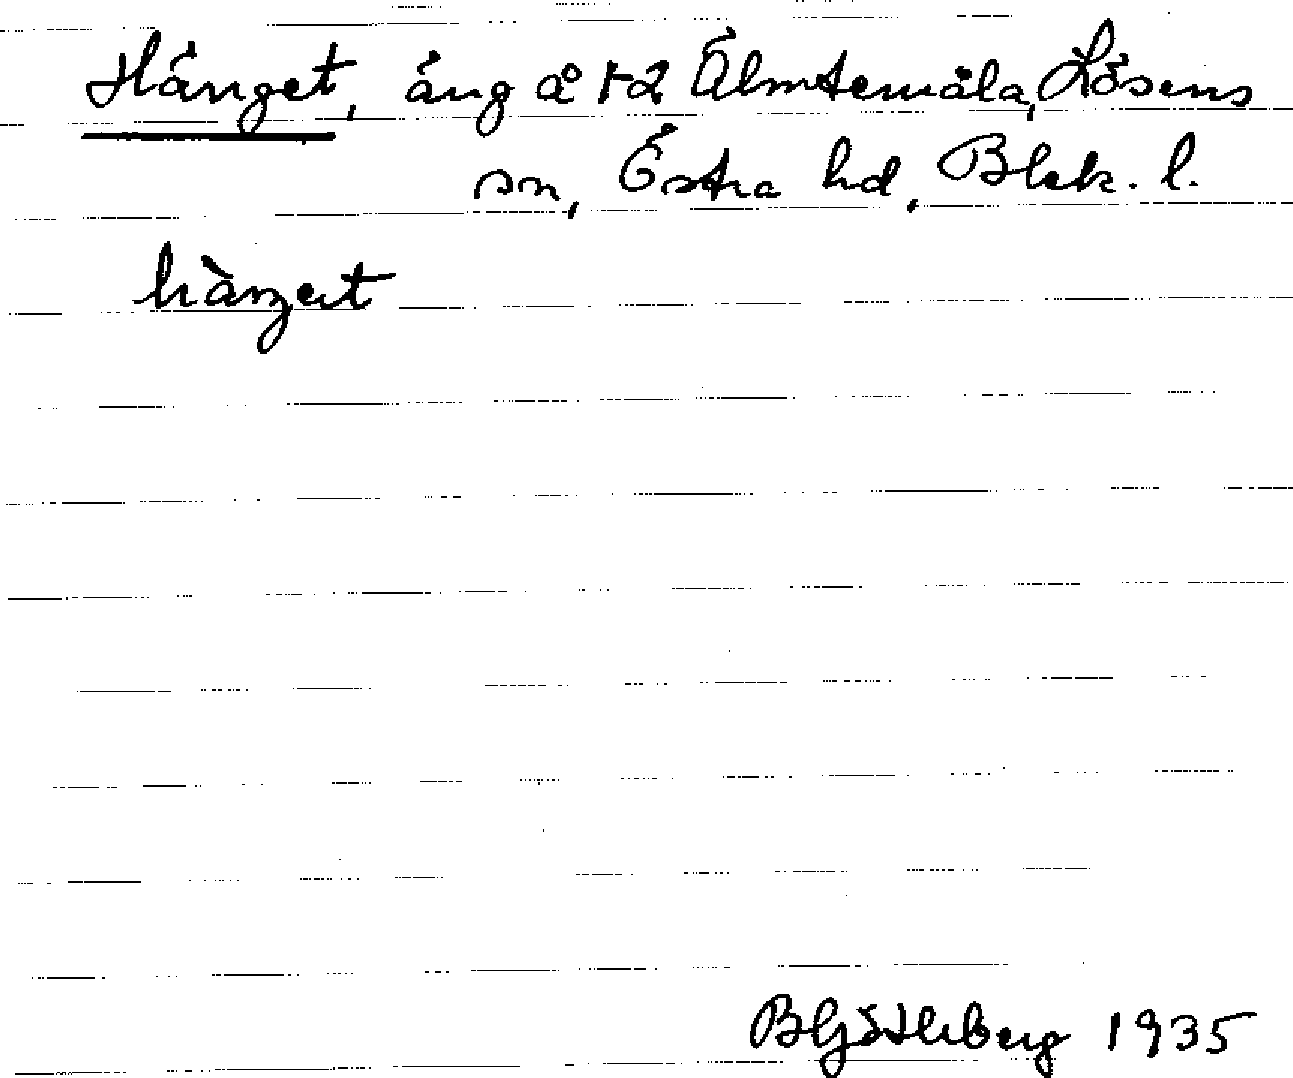 Hänget, äng å 1-2 Älmtemåla, Lösens
sn, Östra hd, Blek. l.
hàŋət
B Götlberg 1935